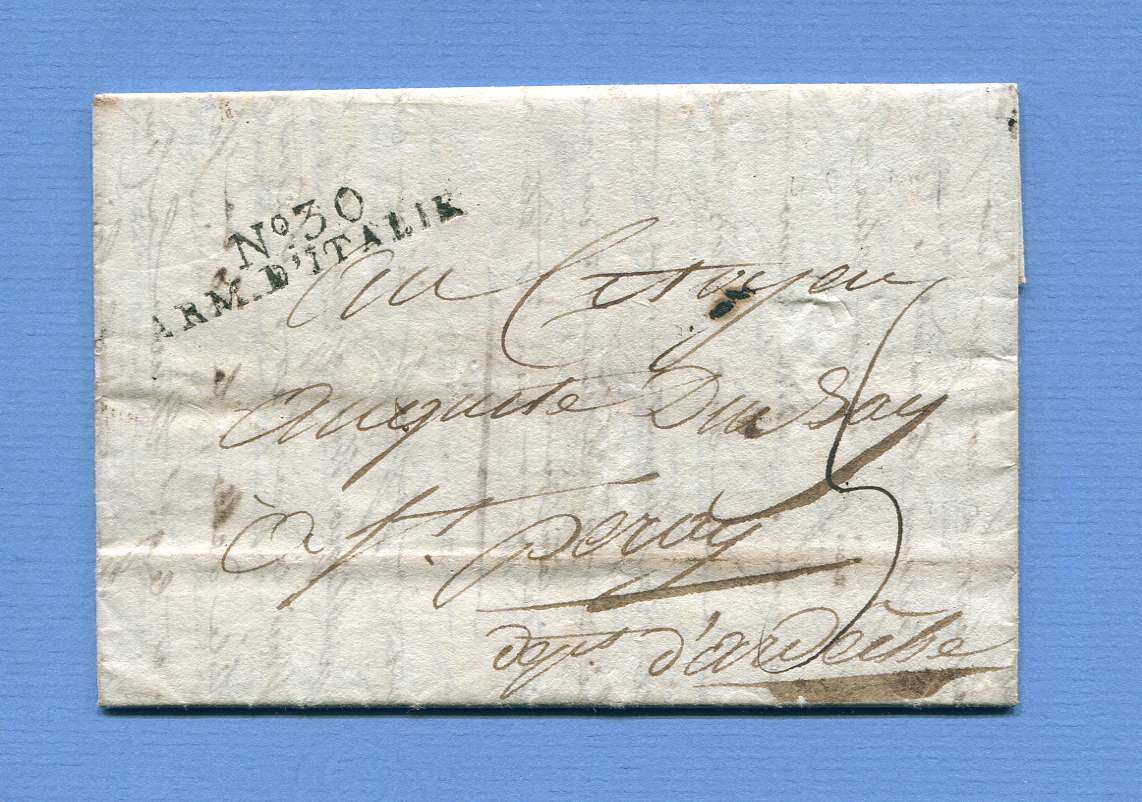 No 30
ARM. D'ITALIE
Au Citoyen
auguste Dusay
à St. peray
dept. d'ardèche